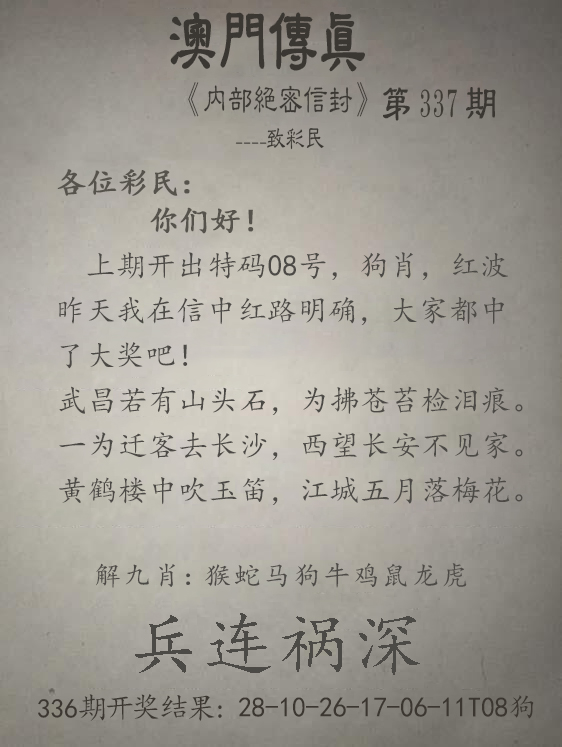 澳門傳真
《内部絕密信封》第337期
----致彩民
各位彩民：
你们好！
上期开出特码08号，狗肖，红波
昨天我在信中红路明确，大家都中
了大奖吧！
武昌若有山头石，为拂苍苔检泪痕。
一为迁客去长沙，西望长安不见家。
黄鹤楼中吹玉笛，江城五月落梅花。
解九肖：猴蛇马狗牛鸡鼠龙虎
兵连祸深
336期开奖结果：28-10-26-17-06-11T08狗